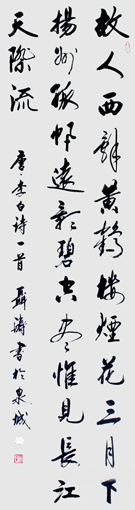 故人西辞黄鹤楼煙花三月下
揚州孤帆遠影碧空尽惟見長江
天際流
唐李白诗一首聶涛書於泉城